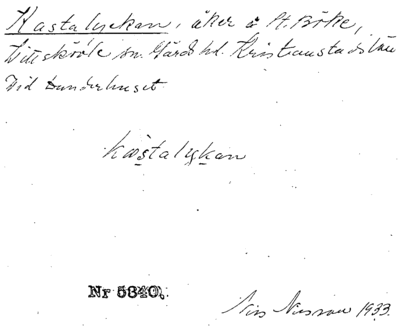 Kastalyckan, åker å St. Böke,
Vittskövle sn. Gärds hd. Kristianstads län
Vid Dunderhuset
kastalykan
Nr 5320.
Nils Nilsson 1933.